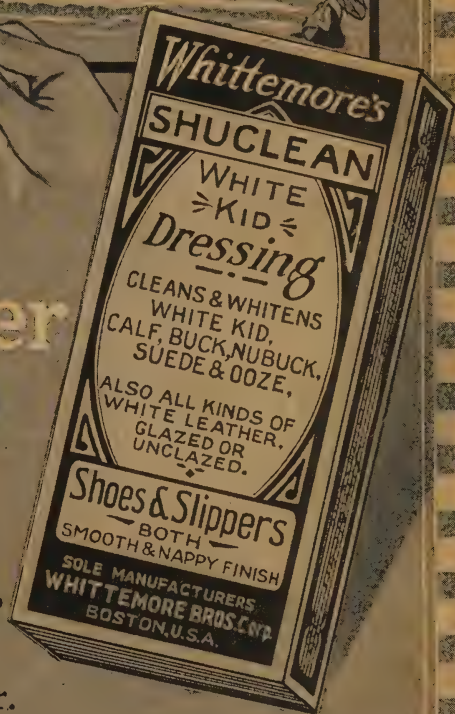 Whittemore's
SHUCLEAN
WHITE
KID
Dressing
CLEANS & WHITENS
WHITE KID,
CALF, BUCK, NUBUCK,
SUEDE & OOZE,
ALSO ALL KINDS OF
WHITE LEATHER.
GLAZED OR
UNGLAZED.
er
Shoes & Slippers
BOTH
SMOOTH & NAPPY FINISH
SOLE MANUFACTURERS
WHITTEMORE BROS. Corp.
BOSTON, U.S.A.